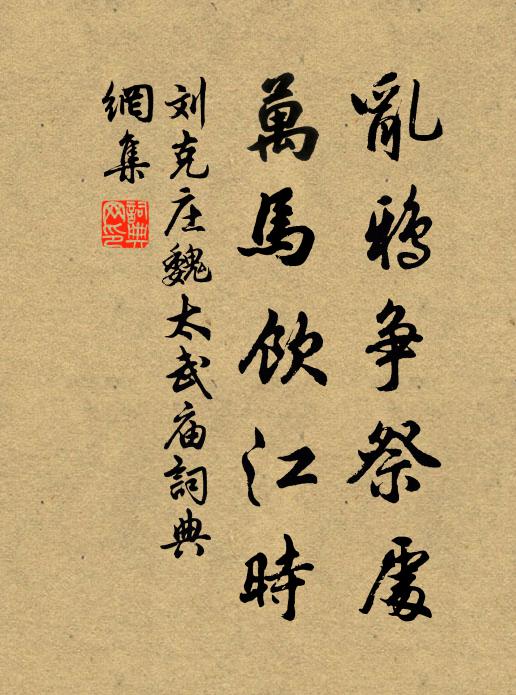 亂鴉争祭處
萬馬飲江時
刘克庄魏太武庙詞典
網集
詞典網印